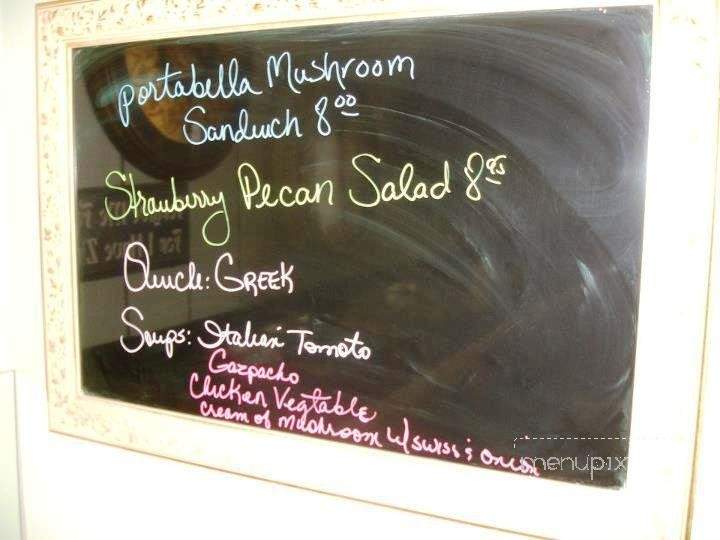 portabella Mushroom
Sandwich 8.00
Strawberry Pecan Salad 8.95
Quiche: GREEK
Soups: Italian Tomato
Gazpacho
Chicken Vegtable
cream of mushroom w/ swiss & onion
menupix